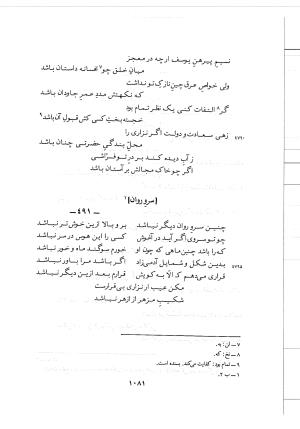 نسیم پیرهن یوسف ارچه در معجز
میان خلق چو۷ افسانه داستان باشد
ولی خواص عرق‌چین نازک تو نداشت
که نکهتش مدد عمر جاودان باشد
گر۸ التفات کنی یک نظر تمام بود
خجسته بخت کسی کش قبول آن باشد۹
۷۷۹۰ زهی سعادت و دولت اگر نزاری را
محل بندگی حضرتی چنان باشد
ز آب دیده کند بر در تو فراشی
اگر چو خاک مجالش بر آستان باشد
[سرو روان]۱
-۴۹۱-
چنین سرو روان دیگر نباشد بر و بالا ازین خوش‌تر نباشد
چو تو سروی اگر آید در آغوش کسی را این هوس در سر نباشد
که را باشد چنین ماهی که چون او خورم سوگند ماه و خور نباشد
۷۷۹۵ بدین شکل و شمایل آدمی‌زاد اگر باشد مرا باور نباشد
قراری می‌دهم کالّا به کویش قرارم بعد ازین دیگر نباشد
مکن عیب ار نزاری بی‌قرارست
شکیب مزهر از ازهر نباشد
۷ـ آن: ۹.
۸ـ نخ: که.
۹ـ تمام بود: کفایت می‌کند. بسنده است.
۱ـ ب ۲.
۱۰۸۱